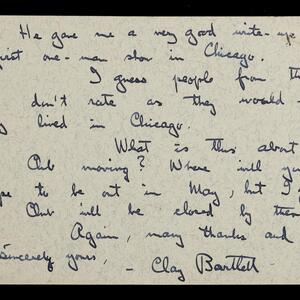 He gave me a very good write-up
first one-man show in Chicago.
I guess people from the
don't rate as they would
lived in Chicago.
What is this about
Club moving? Where will you
to be out in May, but I
Club will be closed by then
Again, many thanks and
Sincerely yours, - Clay Bartlett -